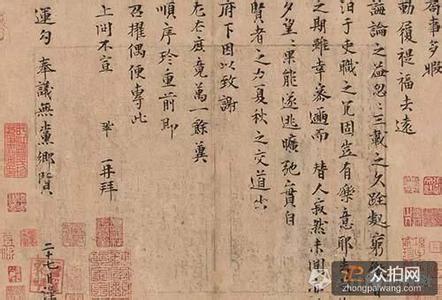 局事多暇
動履禔福去遠
誨論之益忽忽三載之久跧處窮
汩于吏職之冗固豈有樂意耶
之期雖幸密邇而替人寂然未聞
夕望望果能遂逃曠弛實自
賢者之力夏秋之交道出
府下因以致謝
左右庶竟萬一餘冀
順序珍重前即
召擢偶便專此
上問不宣 鞏 再拜
運勾奉議無黨鄉賢
二十七日
众拍网
zhongpaiwang.com